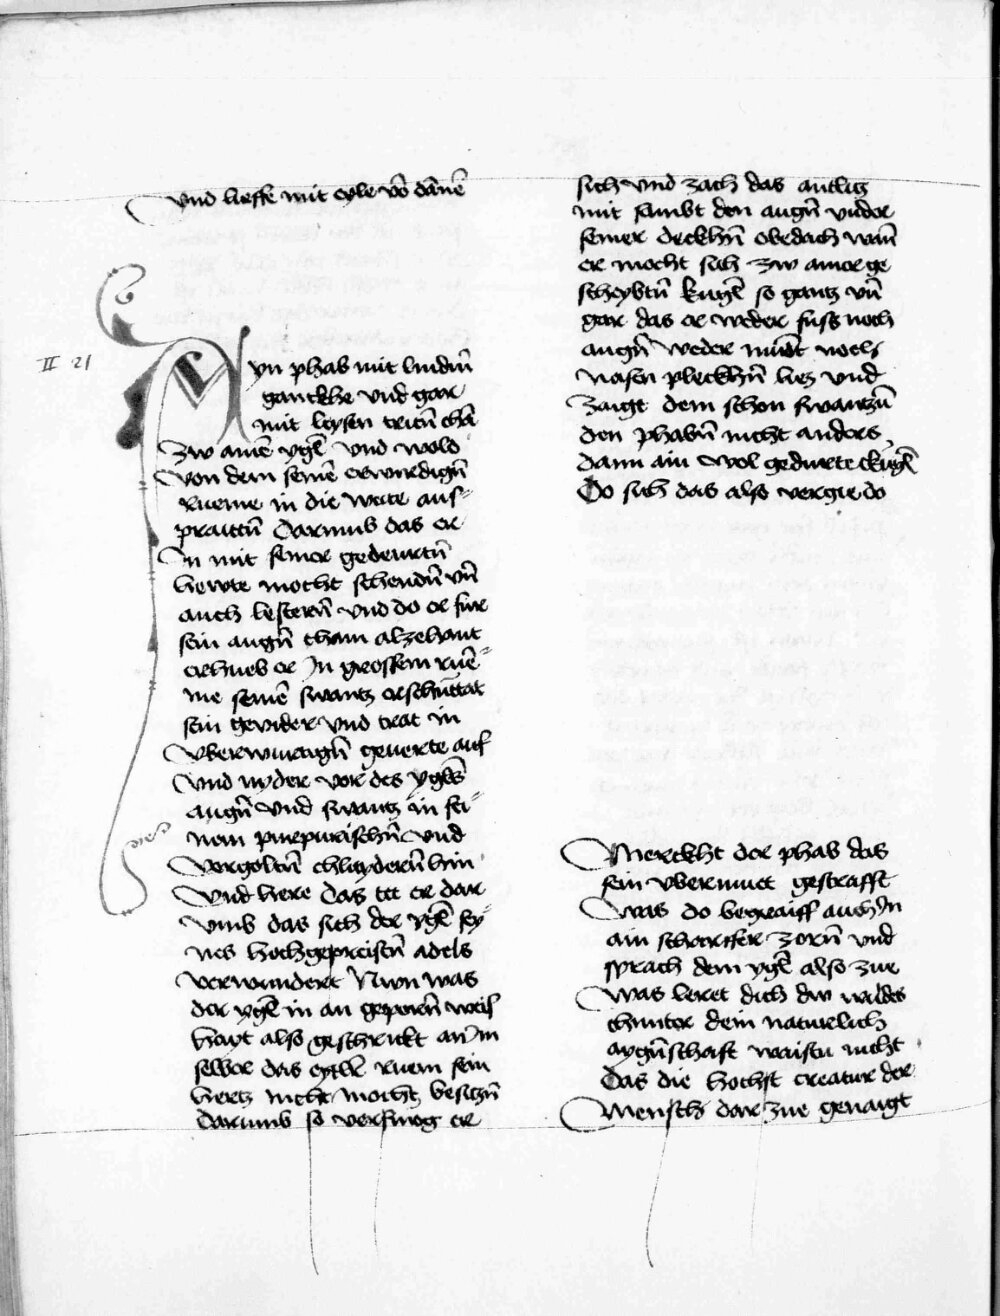 vnd lieffe mit eyle võ dānē
II 21
Ayn phab mit lindm̃
ganckhe vnd gar
mit leysen triten̄ chā
zw ainē ygl̄ vnd wold
von dem seinē erwirdign̄
rueme in die weite aus=
praittn̄ darumb das er
In mit seiner gedeurtn̄
hewte mocht schendn̄ vn̄
auch lestern̄ vnd do er fur
sein augn̄ cham alzehant
erhueb er In grossem rue=
me seinē swantz erschuttat
sein gevider vnd trat in
vberwirtign̄ geuerte auf
vnd nyder vor des ygl̄s
augn̄ vnd swantz in sei=
nem purpurischn̄ vnd
vergoltn̄ chlaydern̄ hin
vnd here das tet er dar
vmb das sich der ygl̄ sey=
nes hochgepreistn̄ adels
verwundert Nun was
der ygl̄ in an geporn̄ weis̄
hayt also geschickt an Im
selber das eytl̄r ruem sein
hertz nicht mocht besitzn̄
darumb so versmog er
sich vnd zach das antlitz
mit sambt den augn̄ vnder
seiner deckhn̄ obedach wan̄
er mocht sich zw ainer ge
scheybtn̄ kugl̄ so gantz vn̄
gar das er weder fuss noch
augn̄ weder mūdt noch
nasen pleckhn̄ lies vnd
zaigt dem schon swantzn̄
den phabn̄ nicht anders
dann ain wol gedurte kugl̄
Do sich das also vergie do
Merckht der phab das
sein vbermuet gestrafft
was do begraiff auch In
ain scharffer zorn̄ vnd
sprach dem ygl̄ also zue
was leret dich dw waldes
chunter dein naturlich
aygn̄schaft waistu nicht
Das die hochst creatur der
Mensch dar zue genaigt